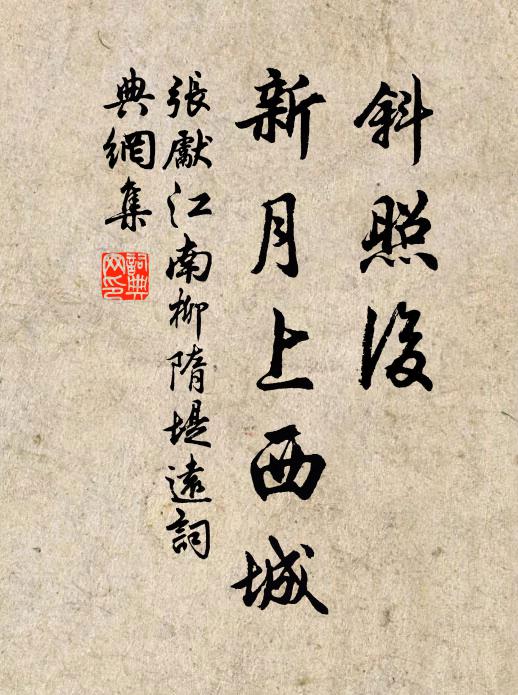 斜照後
新月上西城
張獻江南柳隋堤遠詞
典網集
詞典
网印